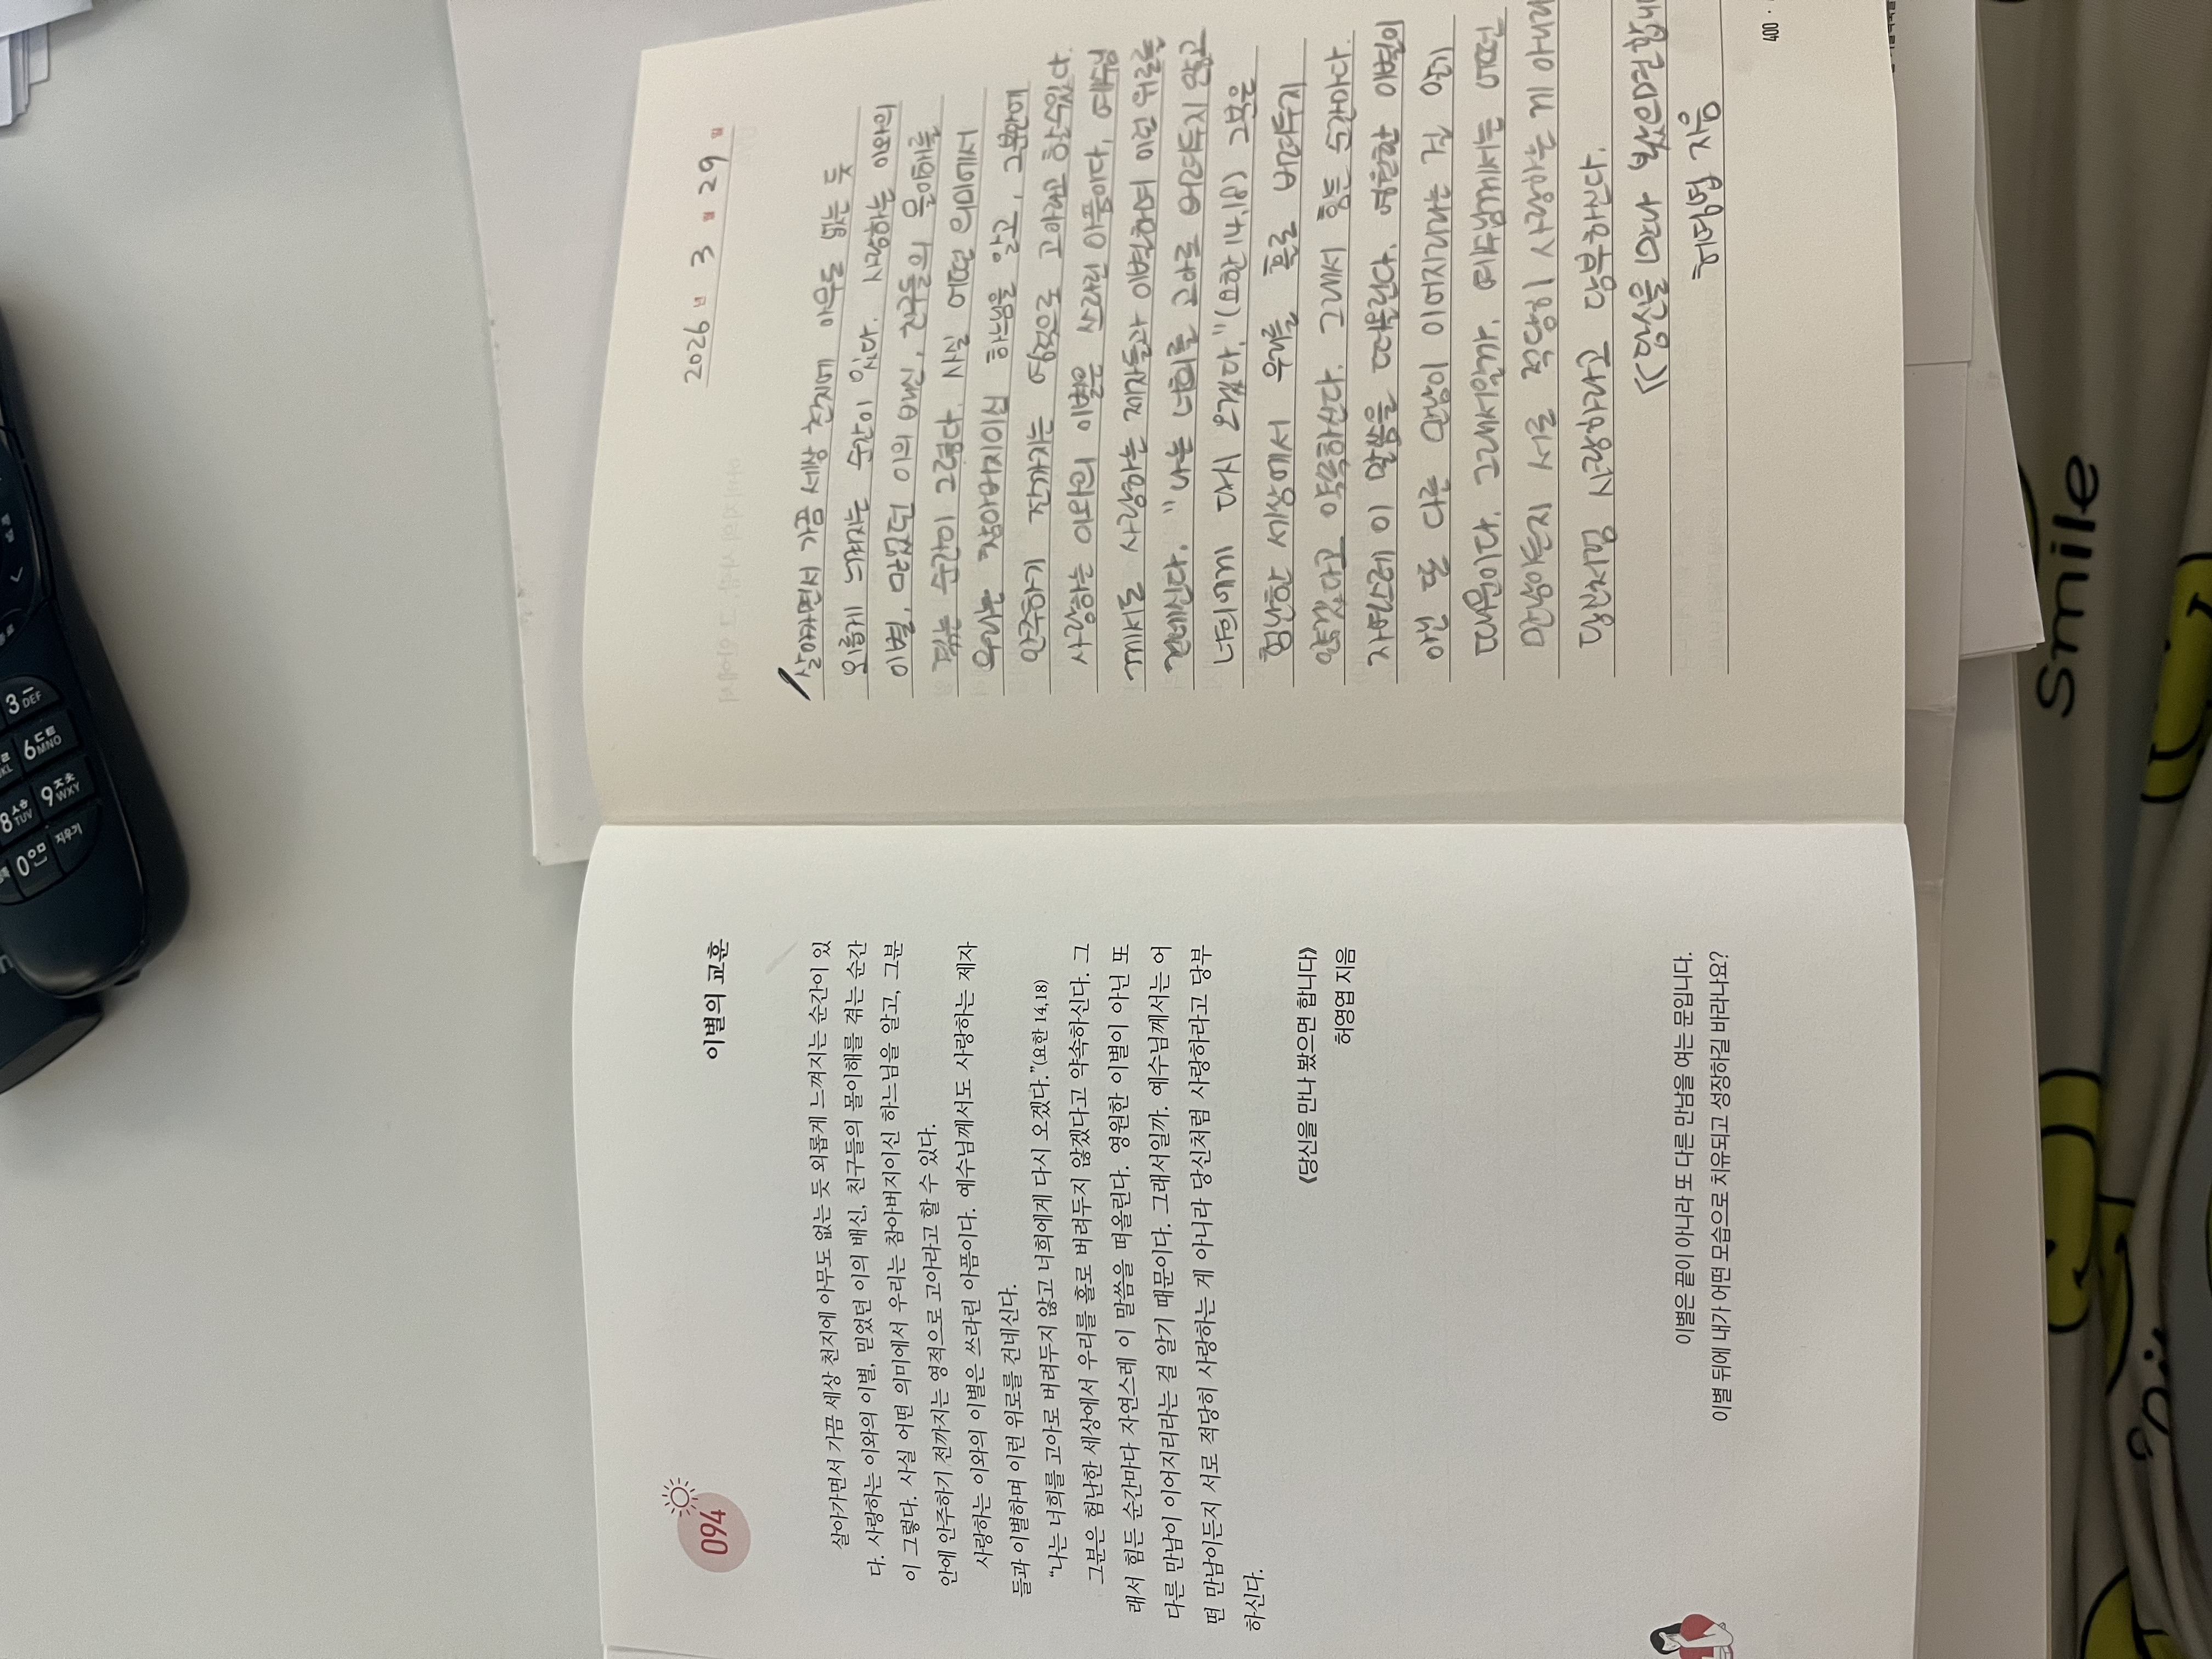 094
이별의 교훈
살아가면서 가끔 세상 천지에 아무도 없는 듯 외롭게 느껴지는 순간이 있
다. 사랑하는 이와의 이별, 믿었던 이의 배신, 친구들의 몰이해를 겪는 순간
이 그렇다. 사실 어떤 의미에서 우리는 참아버지이신 하느님을 알고, 그분
안에 안주하기 전까지는 영적으로 고아라고 할 수 있다.
사랑하는 이와의 이별은 쓰라린 아픔이다. 예수님께서도 사랑하는 제자
들과 이별하며 이런 위로를 건네신다.
“나는 너희를 고아로 버려두지 않고 너희에게 다시 오겠다.”(요한 14,18)
그분은 험난한 세상에서 우리를 홀로 버려두지 않겠다고 약속하신다. 그
래서 힘든 순간마다 자연스레 이 말씀을 떠올린다. 영원한 이별이 아닌 또
다른 만남이 이어지리라는 걸 알기 때문이다. 그래서일까. 예수님께서는 어
떤 만남이든지 서로 적당히 사랑하는 게 아니라 당신처럼 사랑하라고 당부
하신다.
《당신을 만나 봤으면 합니다》
허영엽 지음
이별은 끝이 아니라 또 다른 만남을 여는 문입니다.
이별 뒤에 내가 어떤 모습으로 치유되고 성장하길 바라나요?
2026 년 3 월 29 일
살아가면서 가끔 세상 천지에 아무도 없는 듯
외롭게 느껴지는 순간이 있다. 사랑하는 이와의
이별, 믿었던 이의 배신, 친구들의 몰이해를
겪는 순간이 그렇다. 사실 어떤 의미에서
우리는 참아버지이신 하느님을 알고, 그분안에
안주하기 전까지는 영적으로 고아라고 할 수 있다.
사랑하는 이와의 이별은 쓰라린 아픔이다. 예수님
께서도 사랑하는 제자들과 이별하며 이런 위로를
건네신다. "나는 너희를 고아로 버려두지 않고
너희에게 다시 오겠다."(요한 14,18) 그분은
험난한 세상에서 우리를 홀로 버려두지
않겠다고 약속하신다. 그래서 힘든 순간마다
자연스레 이 말씀을 떠올린다. 영원한 이별이
아닌 또 다른 만남이 이어지리라는 걸 알기
때문이다. 그래서일까. 예수님께서는 어떤
만남이든지 서로 적당히 사랑하는 게 아니라
당신처럼 사랑하라고 당부하신다.
지음
400
3 DEF
6 MNO
8 TUV
9 WXY
0
지우기
Smile